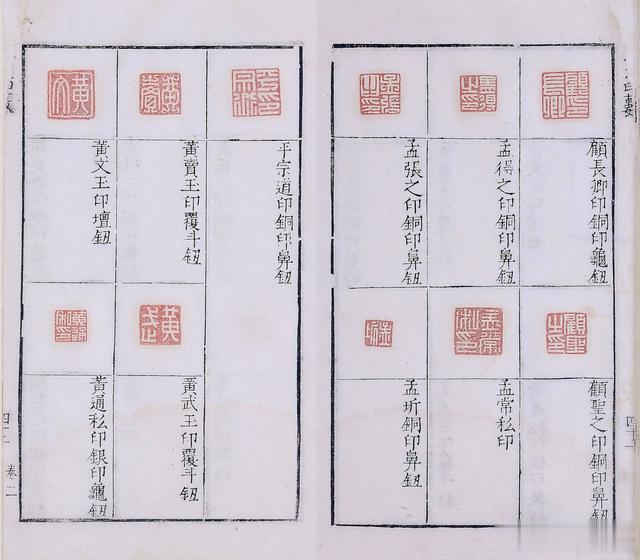 顧長卿印銅印龜鈕
顧聖之印銅印鼻鈕
孟得之印銅印鼻鈕
孟常私印
孟張之印銅印鼻鈕
孟圻銅印鼻鈕
平宗道印銅印鼻鈕
黃賣玉印覆斗鈕
黃武玉印覆斗鈕
黃文玉印壇鈕
黃通私印銀印龜鈕
卷二